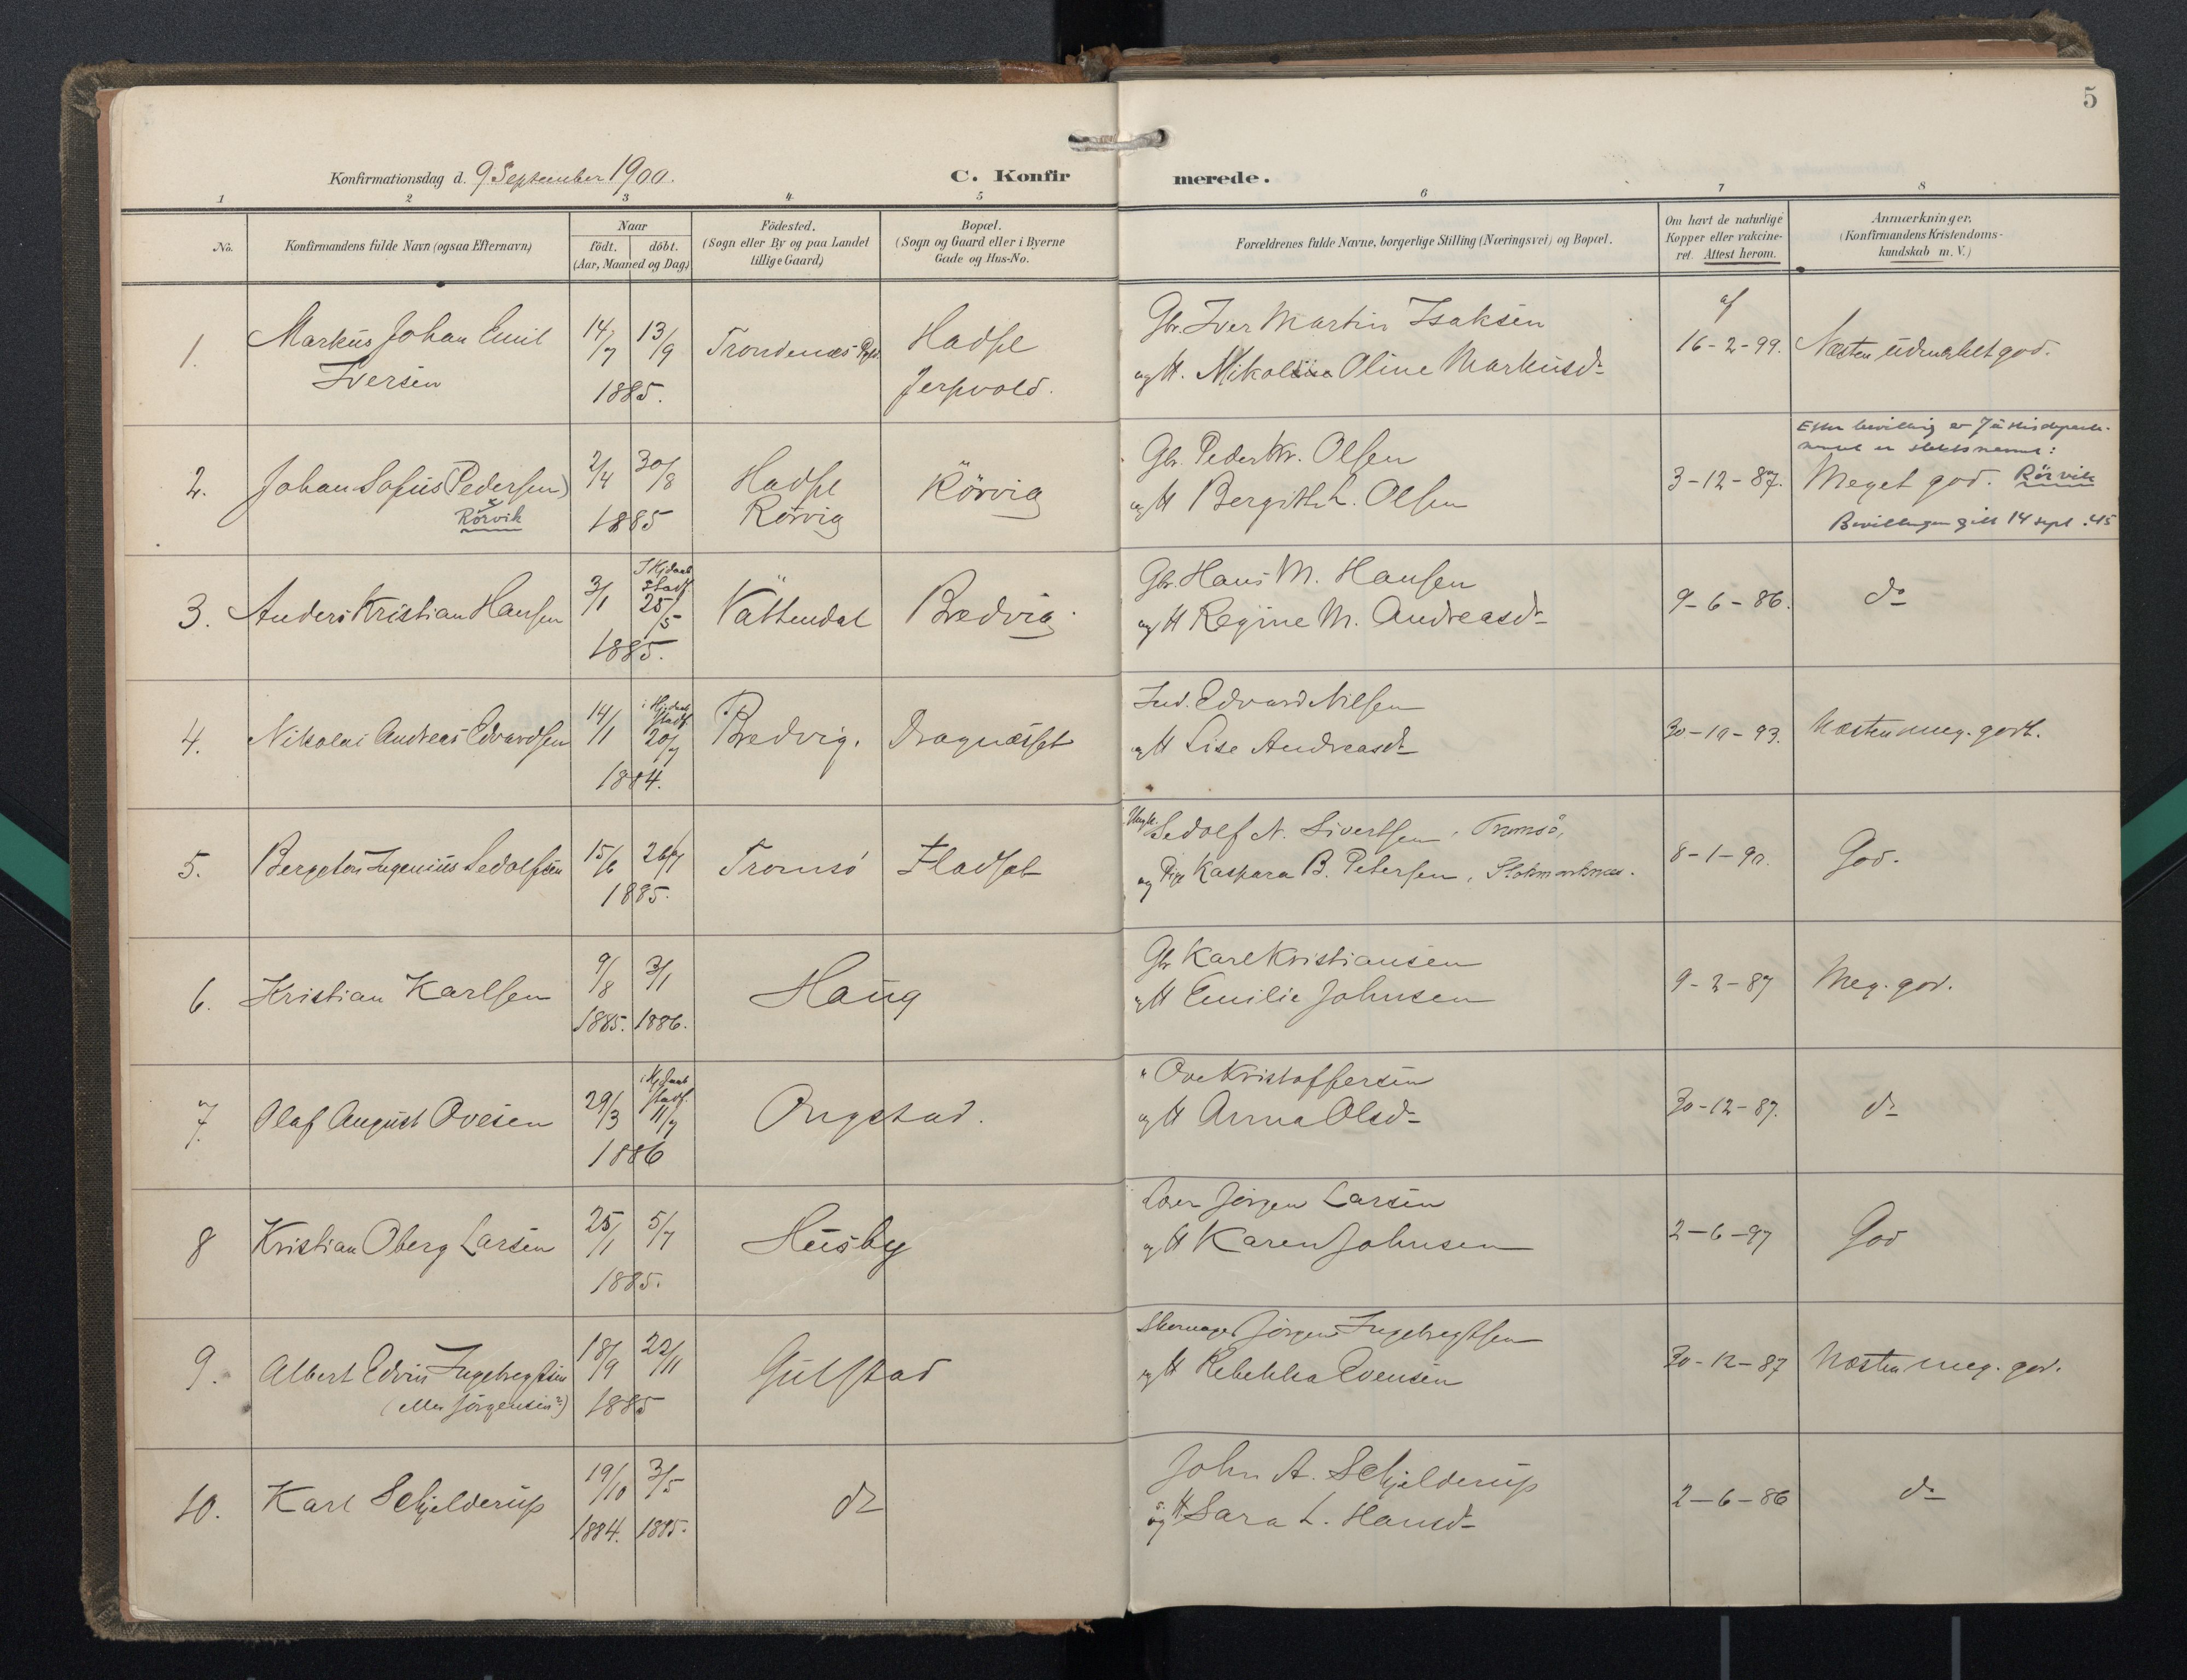 5
Konfirmationsdag d. 9 September 1900.
C. Konfirmerede.
1 2 3 4 5 6 7 8
No.
Konfirmandens fulde Navn (ogsaa Efternavn)
Naar
födt. döbt.
(Aar, Maaned og Dag)
Födested.
(Sogn eller By og paa Landet
tillige Gaard)
Bopæl.
(Sogn og Gaard eller i Byerne
Gade og Hus-No.
Forældrenes fulde Navne, borgerlige Stilling (Næringsvei) og Bopæl.
Om havt de naturlige
Kopper eller vakcine-
ret. Attest herom.
Anmærkninger.
(Konfirmandens Kristendoms-
kundskab m. V.)
1. Markus Johan Emil
Iversen
14/7 13/9
1885.
Trondenæs
Hadsel
Jerpvold.
Gbr. Iver Martin Isaksen
og H. Nikoline Oline Markusdr
af
16-2-99.
Næsten udmærket god.
2. Johan Sofus (Pedersen)
Rörvik
2/4 30/8
1885
Hadsel
Rörvig
Rörvig
Gbr. Peder Kr. Olsen
og H Bergitte L. Olsen
3-12-87.
Efter bevilling av Justisdeparte-
mentet er slektsnavnet:
Meget god. Rörvik
Bevillingen gitt 14 sept. 45
3. Anders Kristian Hansen
3/1
Stadf.
25/5
1885.
Vattendal
Bredvig.
Gbr. Hans M. Hansen
og H Regine M. Andreasdr
9-6-86.
do
4. Nikolai Andreas Edvardsen
14/1
Stadf.
20/7
1884.
Bredvig.
Dragnæsset
Ind. Edvard Nilsen
og H Lise Andreasdr
30-10-93.
Næsten meg. godt.
5. Bergeton Ingenius Sedolfsen
15/6 26/7
1885.
Tromsö
Fladset
Ungk. Sedolf N. Sivertsen, Tromsö,
og Pige Kaspara B. Petersen, Stokmarknæs.
8-1-90.
God.
6. Kristian Karlsen
9/8 3/1
1885. 1886.
Haug
Gbr Karl Kristiansen
og H Emilie Johnsen
9-2-87
Meg. god.
7. Olaf August Ovesen
29/3
Stadf.
11/7
1886
Ongstad.
" Ove Kristoffersen
og H Anna Olsdr
30-12-87.
do
8 Kristian Oberg Larsen
25/1 5/7
1885.
Husby
Jörgen Larsen
og H Karen Johnsen
2-6-97
God
9. Albert Edvin Ingebregtsen
(eller Jörgensen?)
18/9 22/11
1885
Gulstad
Skomager Jörgen Ingebregtsen
og H Rebekka Evensen
30-12-87
Næsten meg. god.
10. Karl Schjelderup
19/10 3/5
1884. 1885.
do
John A. Schjelderup
og H Sara L. Hansdr
2-6-86
do